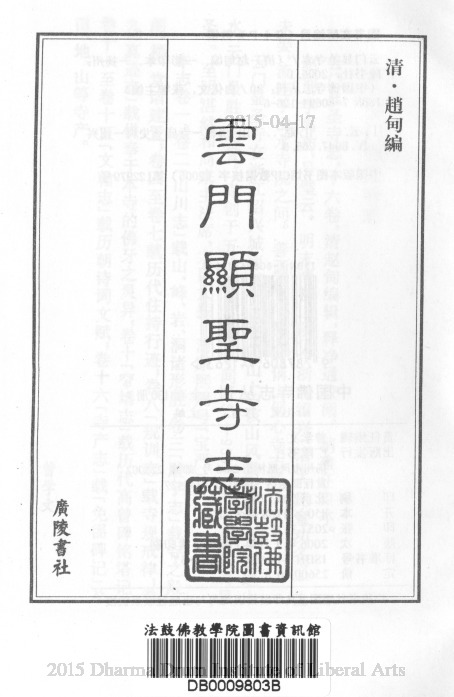 清·趙甸編
2015-04-17
雲門顯聖寺志
廣陵書社
法鼓佛
教學院
藏書
法鼓佛教學院圖書資訊館
2015 Dharma Drum Institute of Liberal Arts
DB0009803B